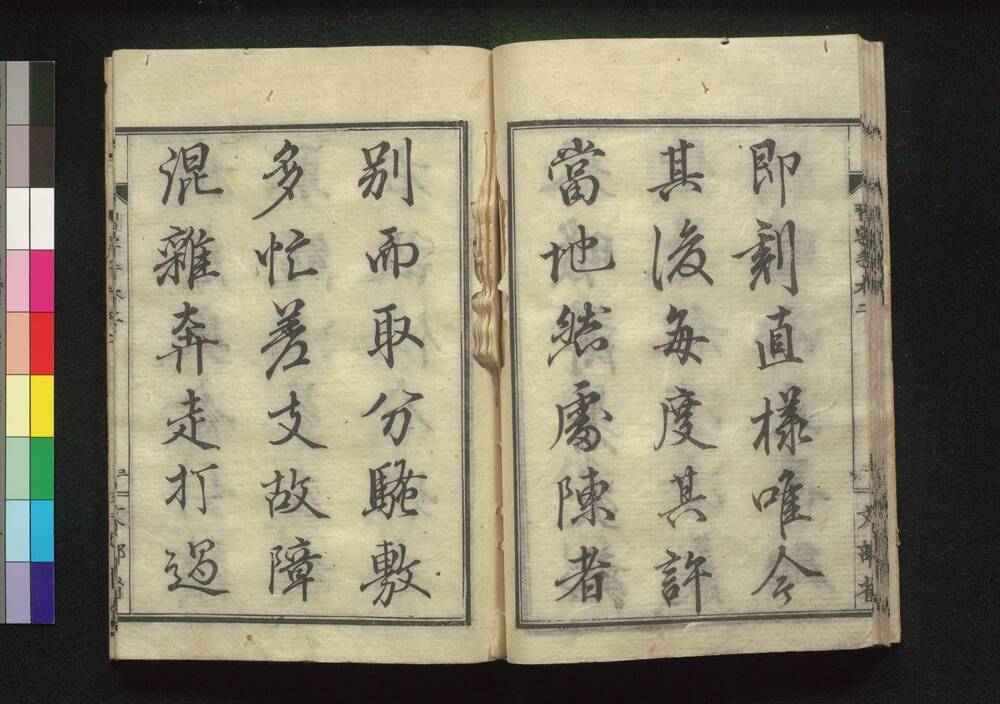 即刻直様唯今
其後毎度其許
當地然處陳者
別而取分騒敷
多忙差支故障
混雜奔走打過
文部省